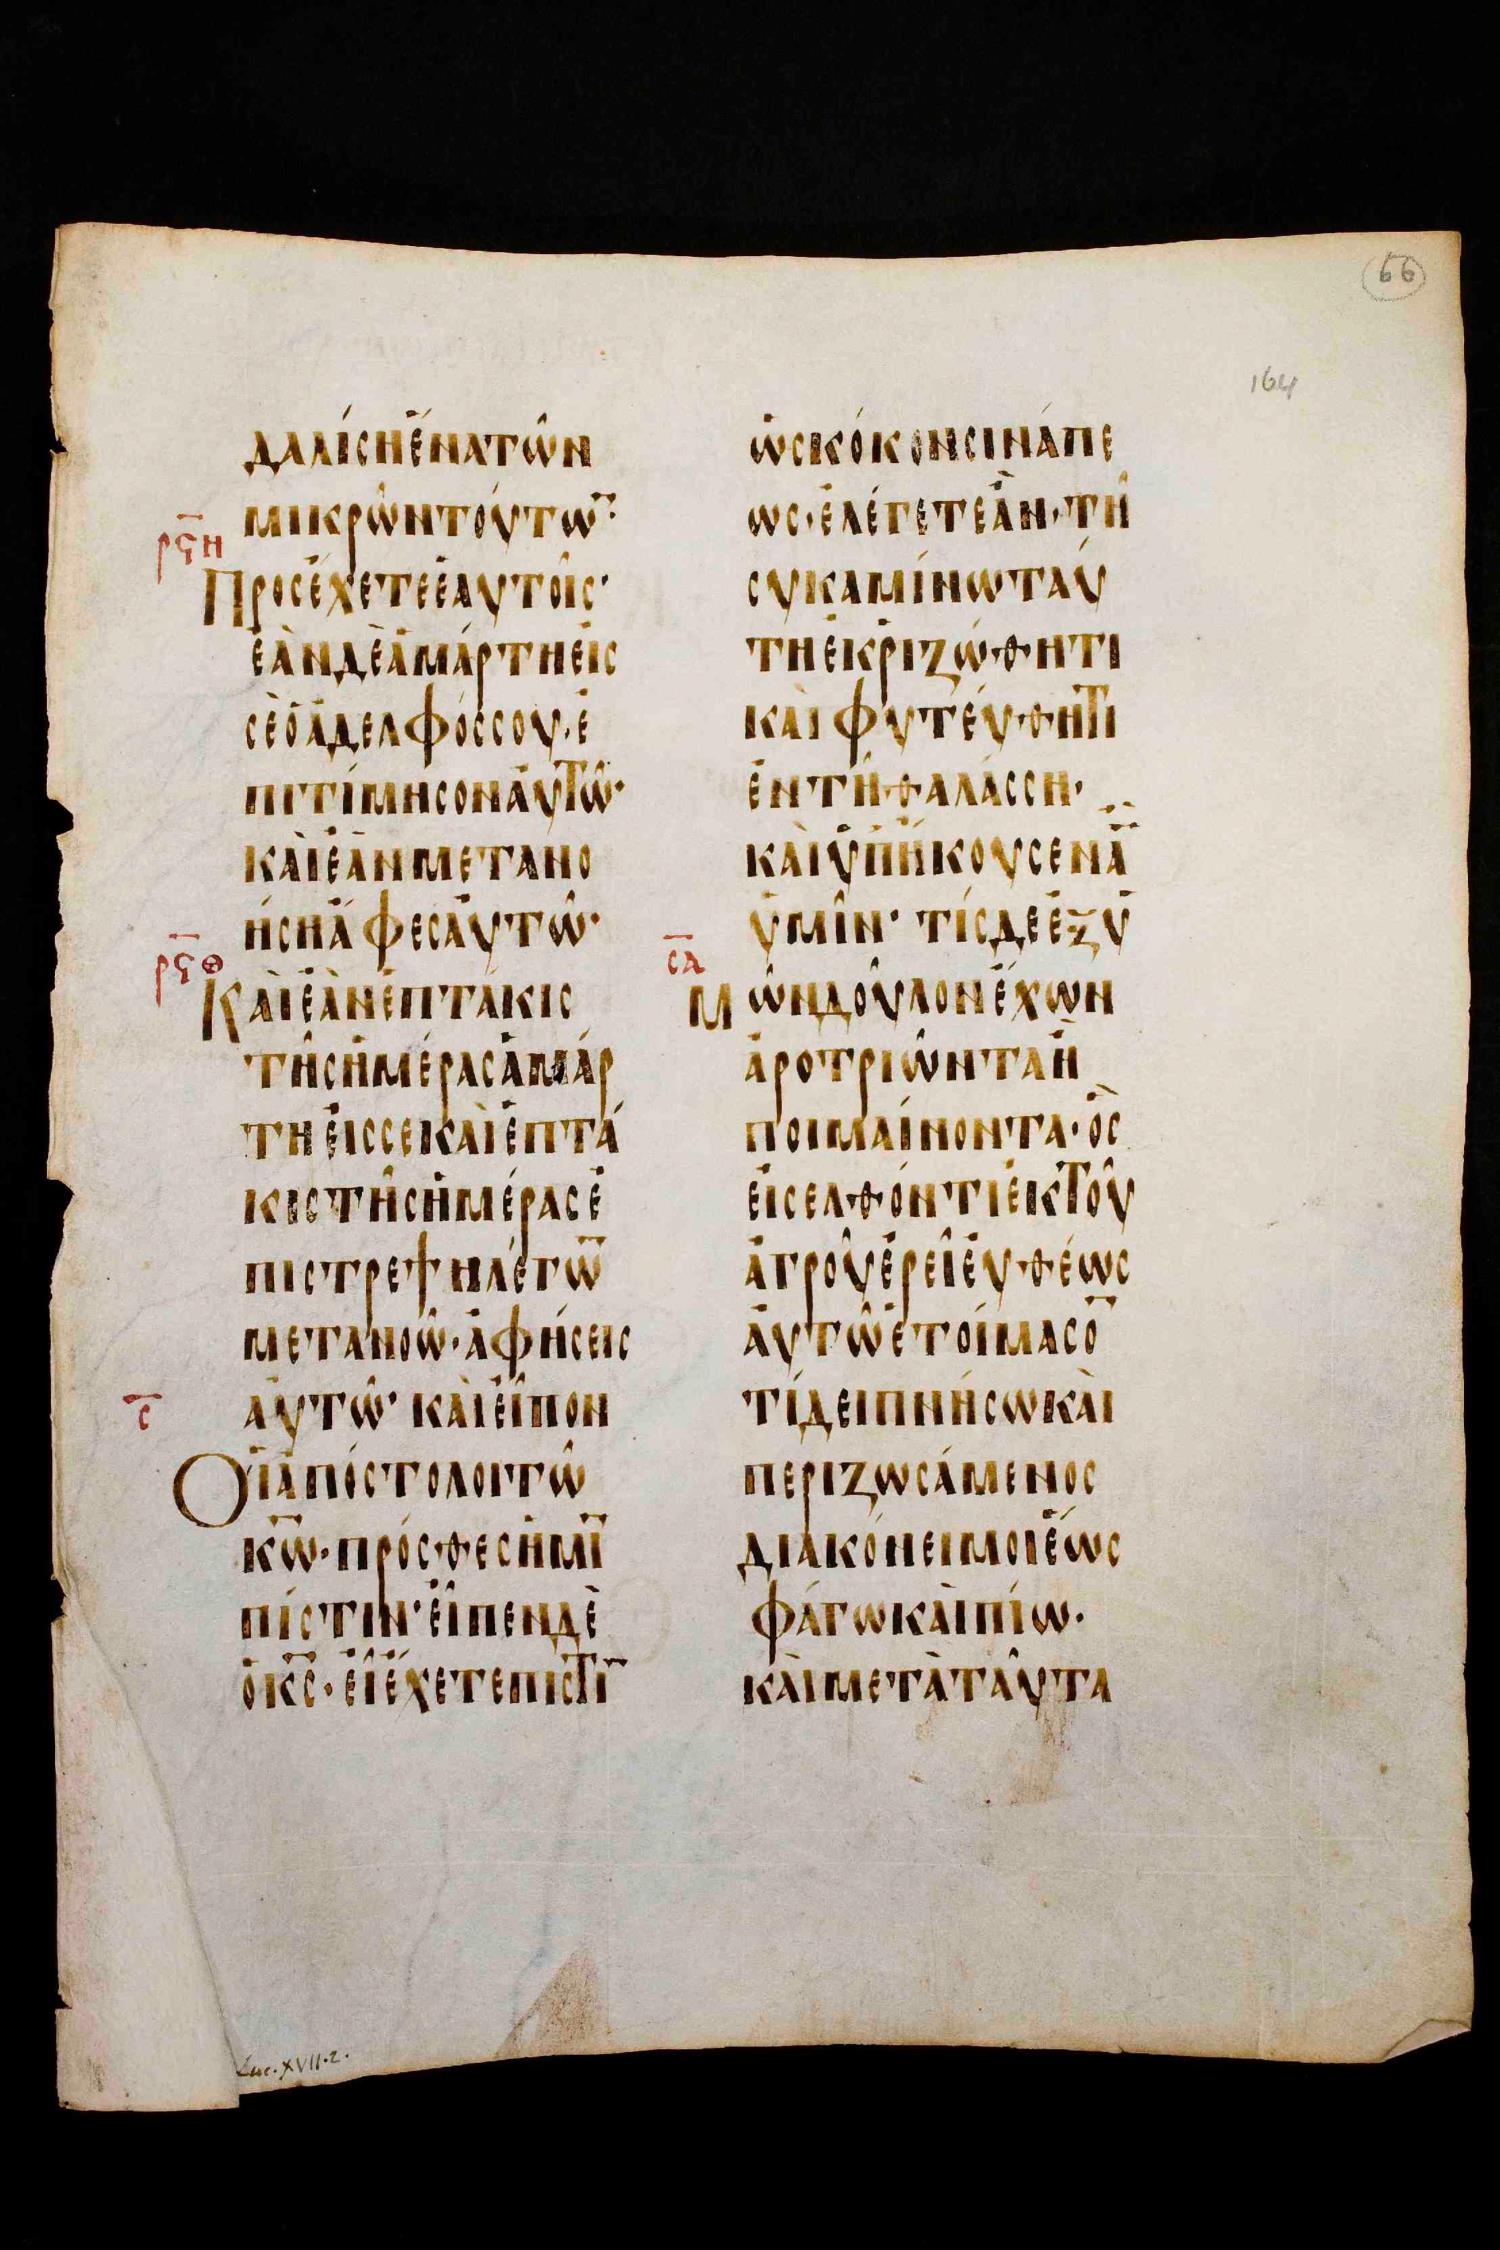 66
164
δαλίσηἕνατῶν
μικρῶντούτω̅·
ρϟη
Προσέχετεἑαυτοῖς·
ἐὰνδὲἁμάρτηεἰς
σὲὁἀδελφόσσου·ἐ
πιτίμησοναὐτῶ·
καὶἐὰνμετανο
ήσηἄφεσαὐτῶ·
ρϟθ
Καὶἐὰνἑπτάκις
τῆσἡμέρασἁμάρ
τηεἰςσεκαὶἑπτά
κιςτῆσἡμέρασἐ
πιστρεψηλέγω̅
μετανοῶ·ἀφήσεις
αὐτῶ· καὶεἶπον
σ̅
Οἱἀπόστολοιτῶ
κ̅ω̅·πρόσθεσἡμῖ̅
πίστιν·εἶπενδὲ
ὁκ̅ς̅·εἰἔχετεπίστι̅
ὡσκόκονσινάπε
ως·ἐλέγετεἂν·τῆ
συκαμίνωταύ
τηἐκριζώθητι
καὶφυτεύθητι
ἐντῆθαλάσση·
καὶὑπήκουσενἂ̅
ὑμῖν· τίσδεἐξὑ
σα
Μῶνδοῦλονἔχων
ἀροτριῶνταἢ
ποιμαίνοντα·ὃς
εἰσελθόντιἐκτοῦ
ἀγροῦἐρεῖεὐθέως
αὐτῶἑτοίμασο̅
τίδειπνήσωκαὶ
περιζωσάμενος
διακόνειμοιἕως
φάγωκαὶπίω·
καὶμετὰταῦτα
Luc. XVII. 2.